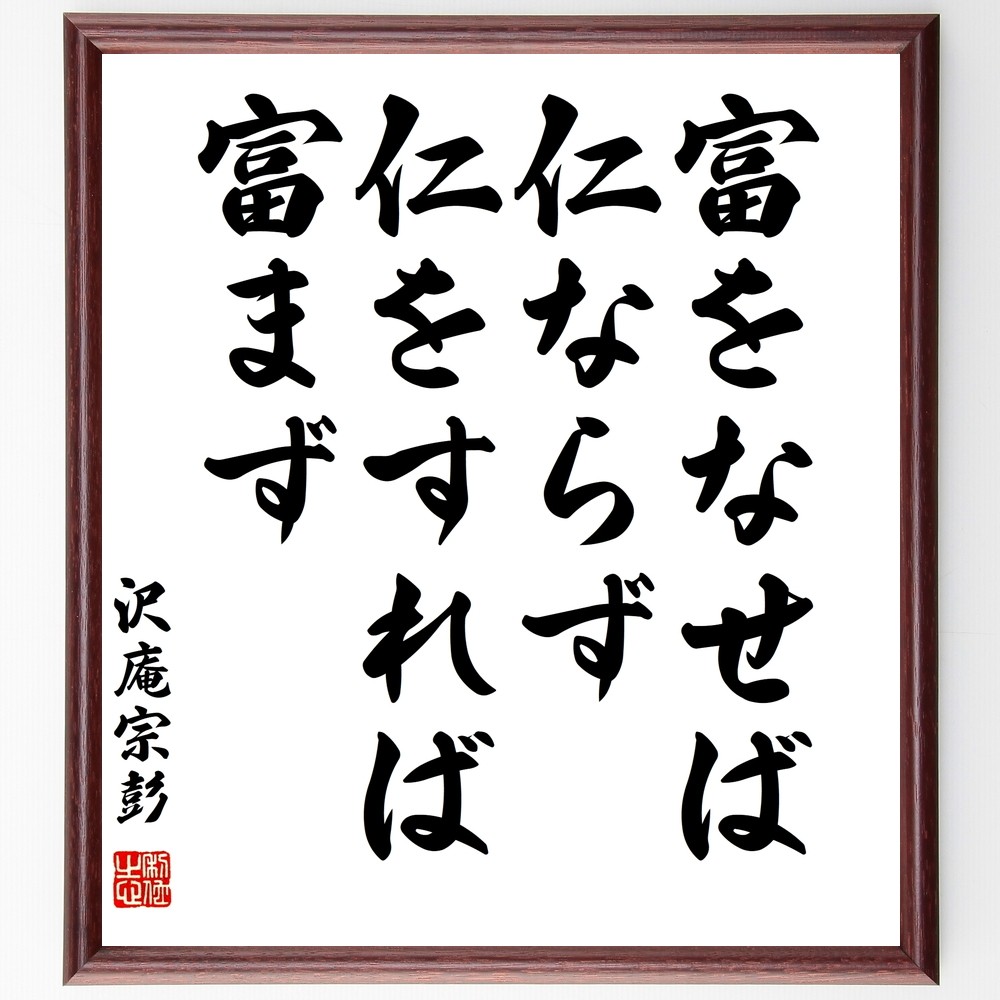 富をなせば
仁ならず
仁をすれば
富まず
沢庵宗彭